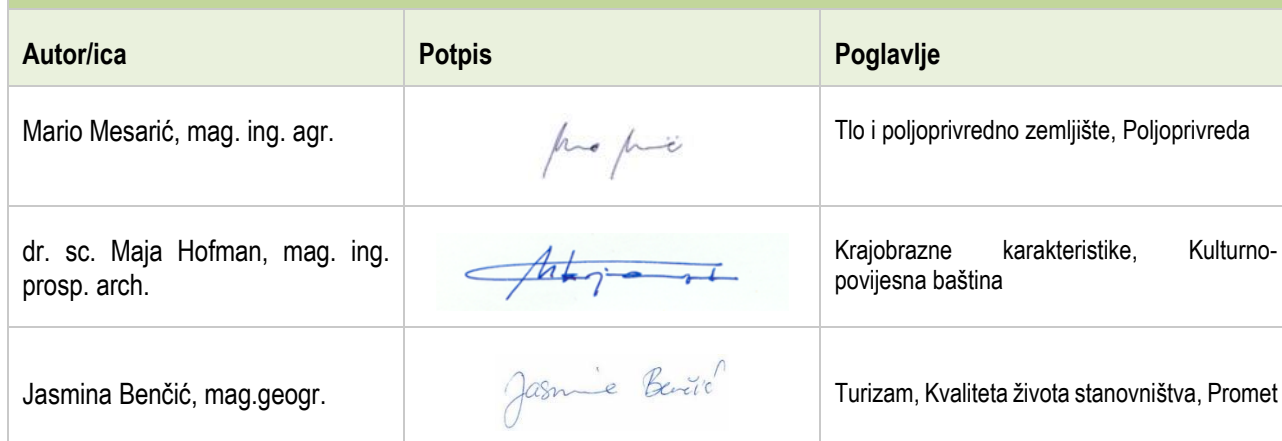 Autor/ica Potpis Poglavlje
Mario Mesarić, mag. ing. agr.
Tlo i poljoprivredno zemljište, Poljoprivreda
dr. sc. Maja Hofman, mag. ing.
prosp. arch.
Krajobrazne karakteristike, Kulturno-
povijesna baština
Jasmina Benčić, mag.geogr.
Jasmina Benčić
Turizam, Kvaliteta života stanovništva, Promet